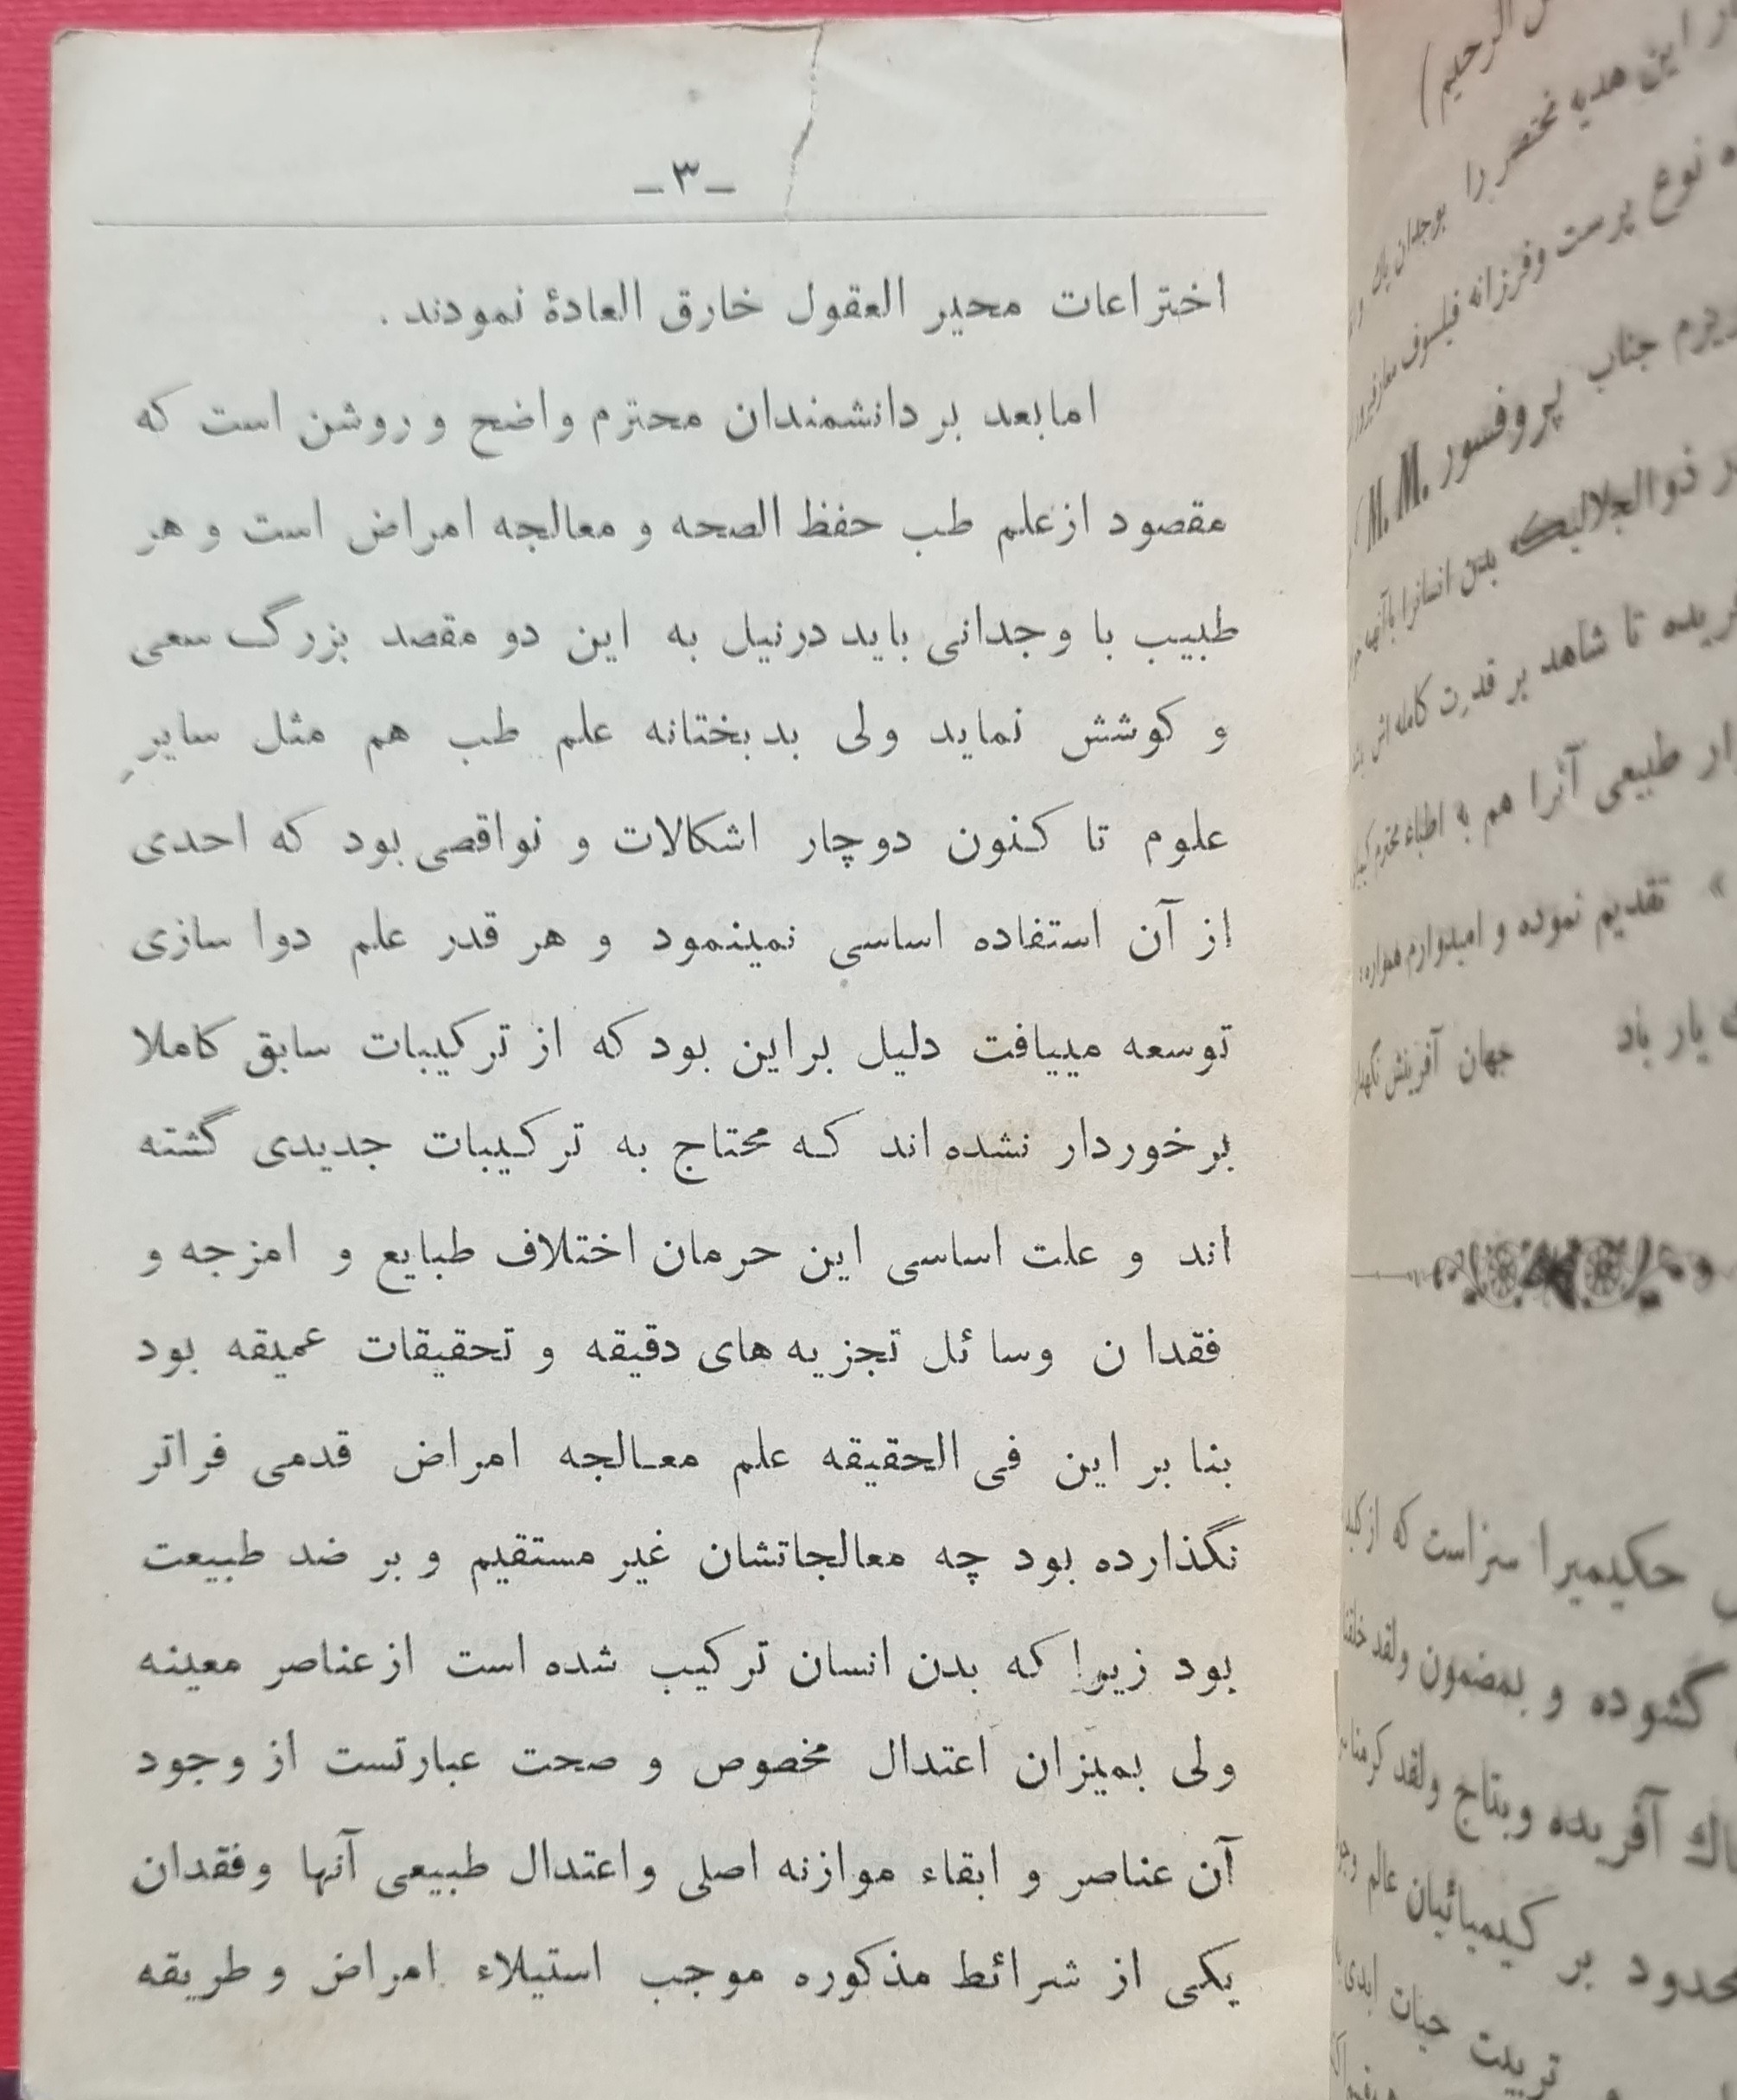 ـ ۳ ـ
اختراعات محیر العقول خارق العادة نمودند .
امابعد بر دانشمندان محترم واضح و روشن است که
مقصود از علم طب حفظ الصحه و معالجه امراض است و هر
طبیب با وجدانی باید در نیل به این دو مقصد بزرگ سعی
و کوشش نماید ولی بدبختانه علم طب هم مثل سایر
علوم تا کنون دوچار اشکالات و نواقصی بود که احدی
از آن استفاده اساسی نمینمود و هر قدر علم دوا سازی
توسعه مییافت دلیل براین بود که از ترکیبات سابق کاملا
برخوردار نشده اند که محتاج به ترکیبات جدیدی گشته
اند و علت اساسی این حرمان اختلاف طبایع و امزجه و
فقدان وسائل تجزیه های دقیقه و تحقیقات عمیقه بود
بنا بر این فی الحقیقه علم معالجه امراض قدمی فراتر
نگذارده بود چه معالجاتشان غیر مستقیم و بر ضد طبیعت
بود زیرا که بدن انسان ترکیب شده است از عناصر معینه
ولی بمیزان اعتدال مخصوص و صحت عبارتست از وجود
آن عناصر و ابقاء موازنه اصلی و اعتدال طبیعی آنها و فقدان
یکی از شرائط مذکوره موجب استیلاء امراض و طریقه
الرحیم)
این هدیه مختصر را بوجدان پاک
نوع پرست و فرزانه فیلسوف
جناب پروفسور M. M.
ذوالجلالیکه بدن انسانرا با آنها
تا شاهد بر قدرت کامله اش
طبیعی آنرا هم به اطباء محترم
» تقدیم نموده و امیدوارم همواره
یار باد جهان آفرینش
حکیمیرا سزاست که از
گشوده و بمضمون ولقد
آفریده و بتاج ولقد کرمنا
بر کیمیائیان عالم
تربیت حیات ابدی